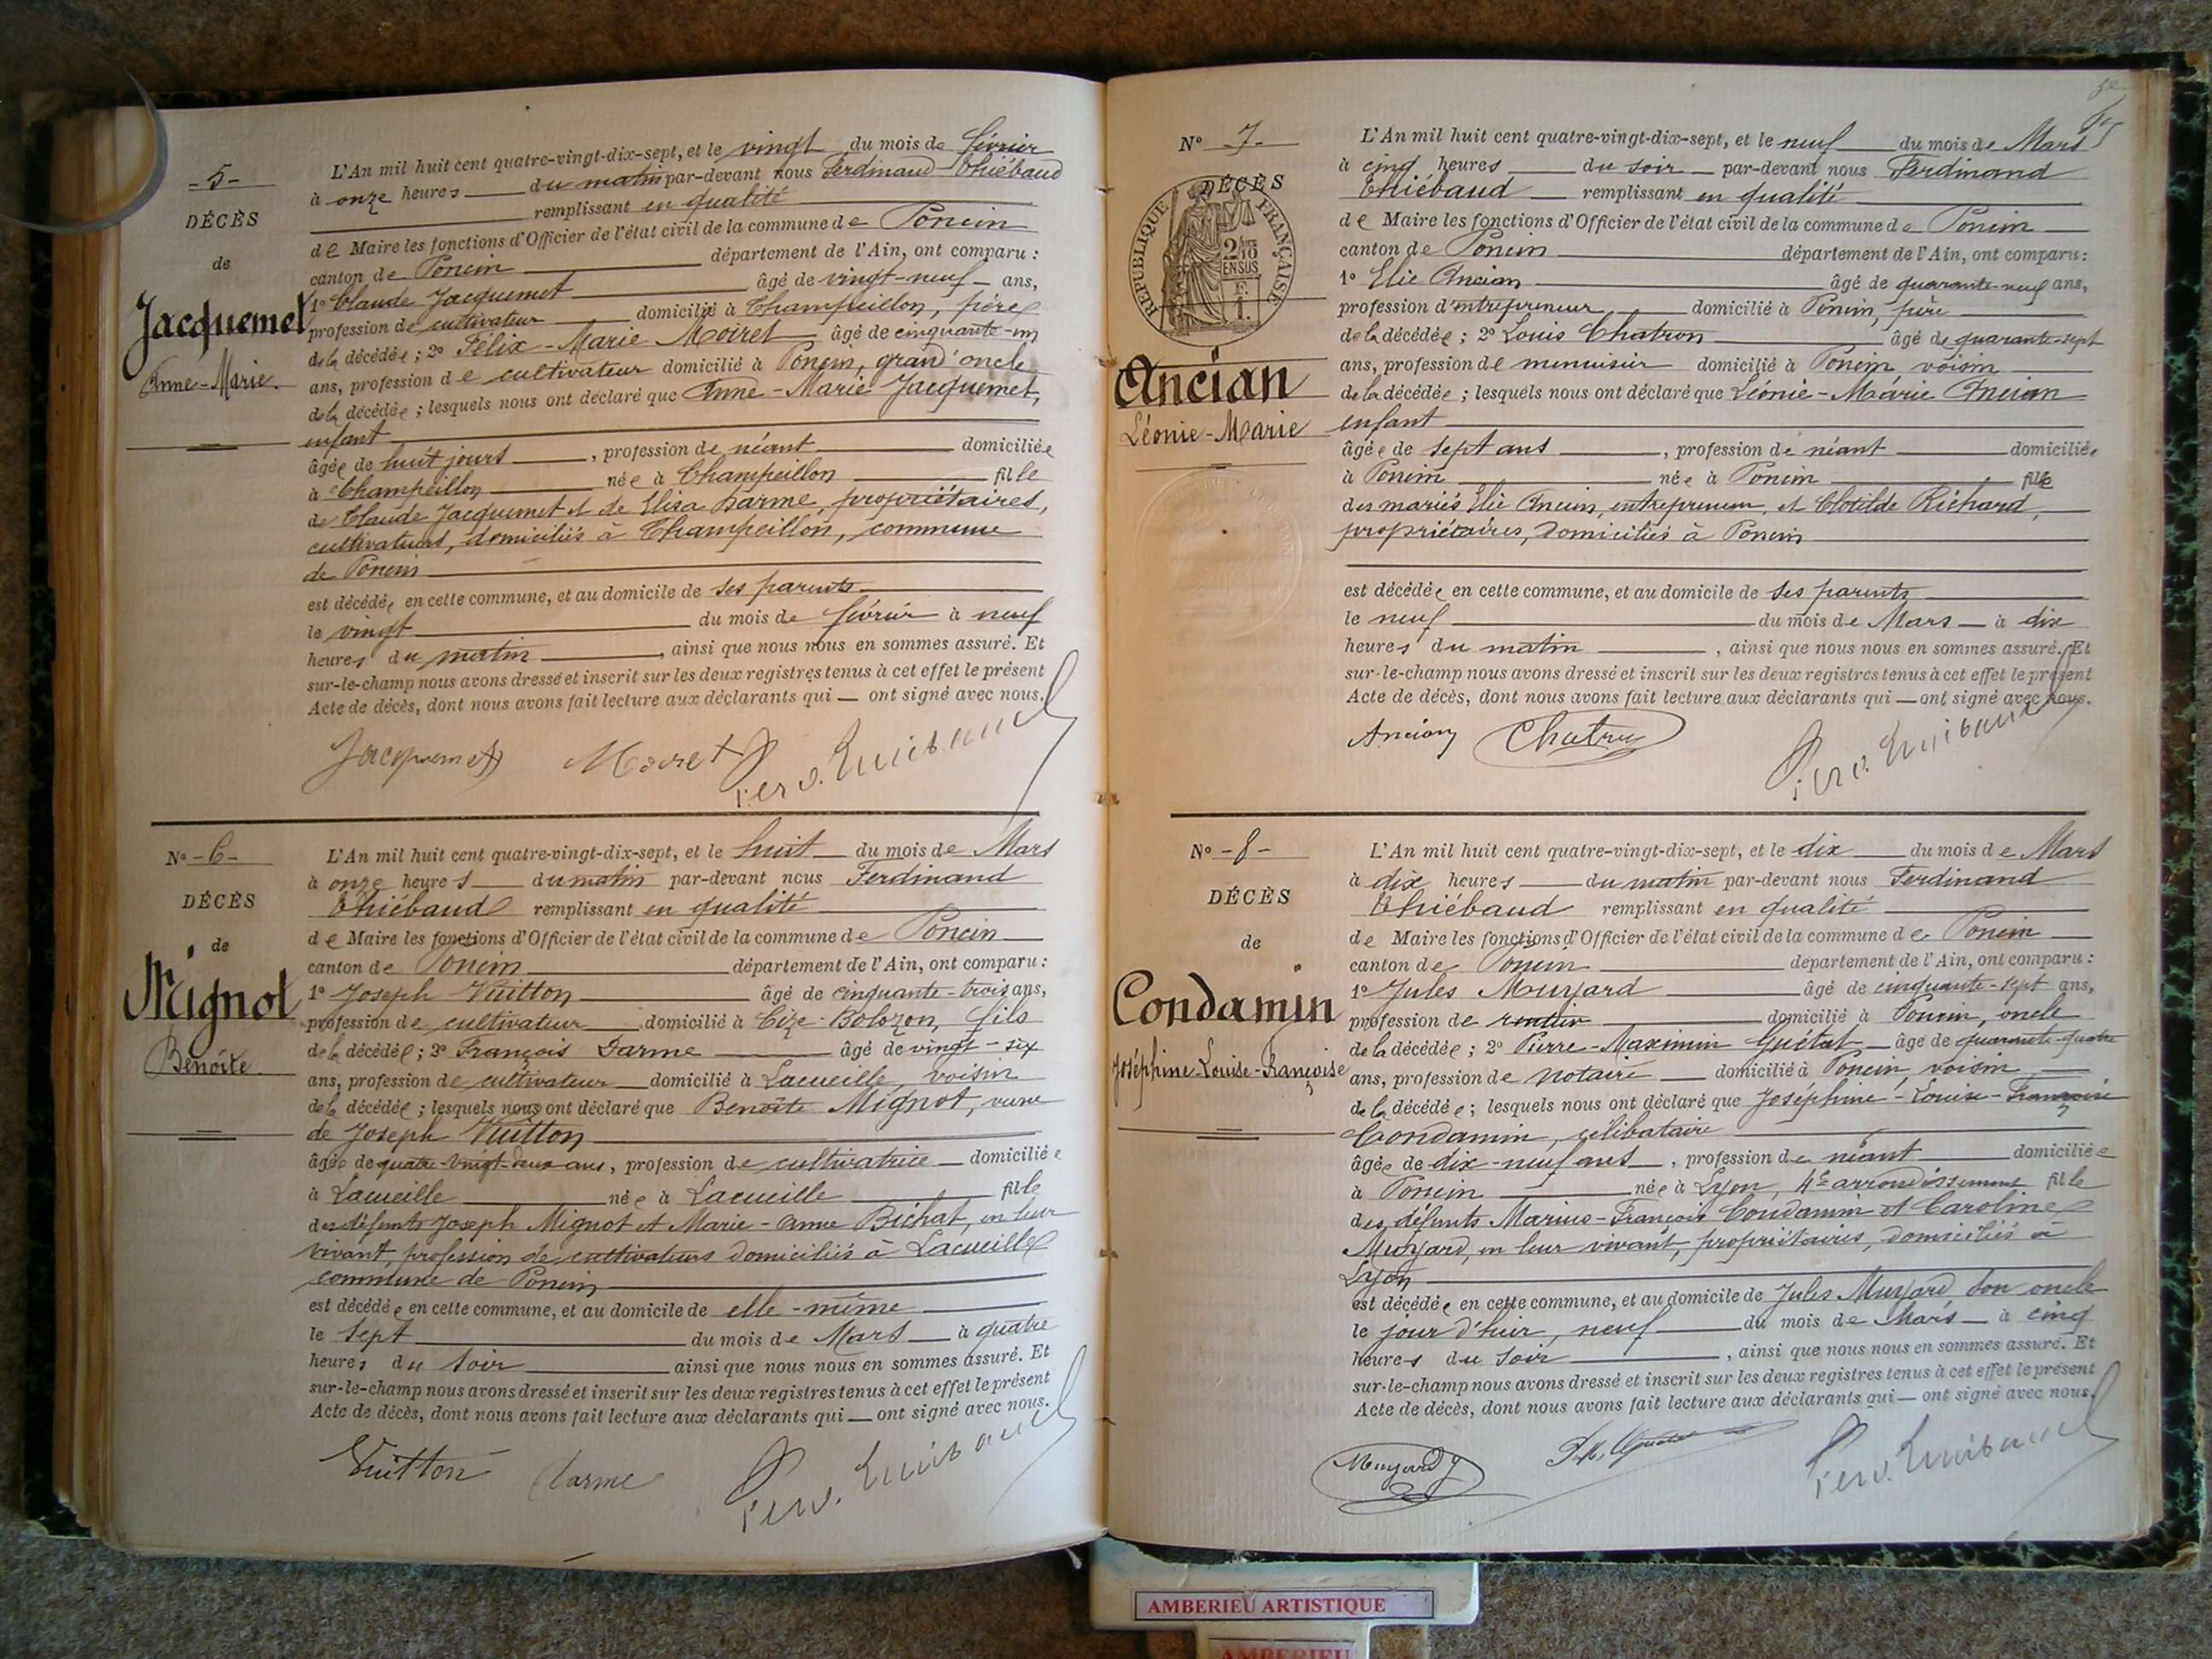 -5-
DÉCÈS
de
Jacquemet
Anne-Marie.
L'An mil huit cent quatre-vingt-dix-sept, et le vingt du mois de février
à onze heures du matin par-devant nous Ferdinand Thiébaud
remplissant en qualité
de Maire les fonctions d'Officier de l'état civil de la commune de Poncin
canton de Poncin département de l'Ain, ont comparu :
1° Claude Jacquemet âgé de vingt-neuf ans,
profession de cultivateur domicilié à Champeillon, père
de la décédée ; 2° Félix-Marie Moiret âgé de cinquante-un
ans, profession de cultivateur domicilié à Poncin, grand'oncle
de la décédée ; lesquels nous ont déclaré que Anne-Marie Jacquemet,
enfant
âgée de huit jours, profession de néant domiciliée
à Champeillon née à Champeillon fille
de Claude Jacquemet et de Elisa Darme, propriétaires,
cultivateurs, domiciliés à Champeillon, commune
de Poncin
est décédée en cette commune, et au domicile de ses parents
le vingt du mois de février à neuf
heures du matin, ainsi que nous nous en sommes assuré. Et
sur-le-champ nous avons dressé et inscrit sur les deux registres tenus à cet effet le présent
Acte de décès, dont nous avons fait lecture aux déclarants qui — ont signé avec nous.
Jacquemet Moiret Ferd. Thiébaud
N° -6-
DÉCÈS
de
Mignot
Benoîte.
L'An mil huit cent quatre-vingt-dix-sept, et le huit du mois de Mars
à onze heures du matin par-devant nous Ferdinand
Thiébaud remplissant en qualité
de Maire les fonctions d'Officier de l'état civil de la commune de Poncin
canton de Poncin département de l'Ain, ont comparu :
1° Joseph Vuitton âgé de cinquante-trois ans,
profession de cultivateur domicilié à Cize-Bolozon, fils
de la décédée ; 2° François Darme âgé de vingt-six
ans, profession de cultivateur domicilié à Lacueille, voisin
de la décédée ; lesquels nous ont déclaré que Benoîte Mignot, veuve
de Joseph Vuitton
âgée de quatre-vingt-deux ans, profession de cultivatrice domiciliée
à Lacueille née à Lacueille fille
des défunts Joseph Mignot et Marie-Anne Bichat, en leur
vivant, profession de cultivateurs domiciliés à Lacueille
commune de Poncin
est décédée en cette commune, et au domicile de elle-même
le sept du mois de Mars à quatre
heures du soir ainsi que nous nous en sommes assuré. Et
sur-le-champ nous avons dressé et inscrit sur les deux registres tenus à cet effet le présent
Acte de décès, dont nous avons fait lecture aux déclarants qui — ont signé avec nous.
Vuitton Darme Ferd. Thiébaud
N° 7-
DÉCÈS
RÉPUBLIQUE FRANÇAISE
Ancian
Léonie-Marie
L'An mil huit cent quatre-vingt-dix-sept, et le neuf du mois de Mars
à cinq heures du soir par-devant nous Ferdinand
Thiébaud remplissant en qualité
de Maire les fonctions d'Officier de l'état civil de la commune de Poncin
canton de Poncin département de l'Ain, ont comparu :
1° Elie Ancian âgé de quarante-neuf ans,
profession d'entrepreneur domicilié à Poncin, père
de la décédée ; 2° Louis Chatron âgé de quarante-sept
ans, profession de menuisier domicilié à Poncin voisin
de la décédée ; lesquels nous ont déclaré que Léonie-Marie Ancian
enfant
âgée de sept ans, profession de néant domiciliée
à Poncin née à Poncin fille
des mariés Elie Ancian, entrepreneur, et Clotilde Richard,
propriétaires, domiciliés à Poncin
est décédée en cette commune, et au domicile de ses parents
le neuf du mois de Mars à dix
heures du matin, ainsi que nous nous en sommes assuré. Et
sur-le-champ nous avons dressé et inscrit sur les deux registres tenus à cet effet le présent
Acte de décès, dont nous avons fait lecture aux déclarants qui — ont signé avec nous.
Ancian Chatron Ferd. Thiébaud
N° -8-
DÉCÈS
de
Condamin
Joséphine-Louise-Françoise
L'An mil huit cent quatre-vingt-dix-sept, et le dix du mois de Mars
à dix heures du matin par-devant nous Ferdinand
Thiébaud remplissant en qualité
de Maire les fonctions d'Officier de l'état civil de la commune de Poncin
canton de Poncin département de l'Ain, ont comparu :
1° Jules Muyard âgé de cinquante-sept ans,
profession de rentier domicilié à Poncin, oncle
de la décédée ; 2° Pierre-Maximin Guétat âgé de quarante-quatre
ans, profession de notaire domicilié à Poncin, voisin
de la décédée ; lesquels nous ont déclaré que Joséphine-Louise-Françoise
Condamin, célibataire
âgée de dix-neuf ans, profession de néant domiciliée
à Poncin née à Lyon, 4e arrondissement fille
des défunts Marius-François Condamin et Caroline
Muyard, en leur vivant, propriétaires, domiciliés à
Lyon
est décédée en cette commune, et au domicile de Jules Muyard son oncle
le jour d'hier, neuf du mois de Mars à cinq
heures du soir, ainsi que nous nous en sommes assuré. Et
sur-le-champ nous avons dressé et inscrit sur les deux registres tenus à cet effet le présent
Acte de décès, dont nous avons fait lecture aux déclarants qui — ont signé avec nous.
Muyard P.M. Guétat Ferd. Thiébaud
AMBERIEU ARTISTIQUE
AMBERIEU